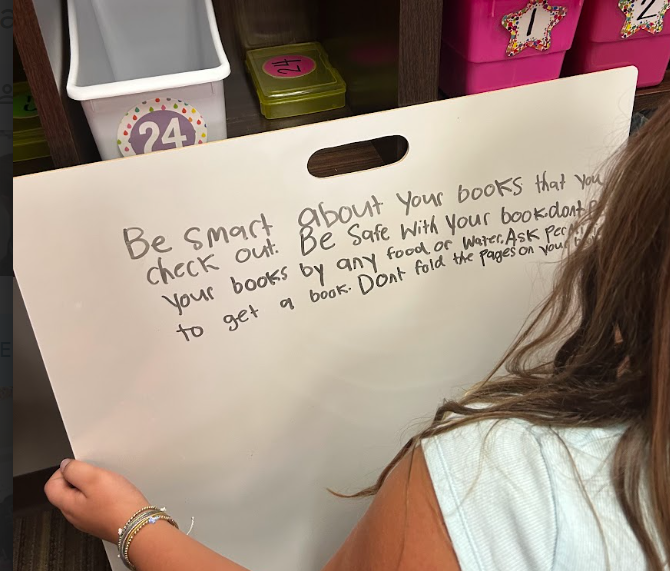 24
24
1
2
Be smart about your books that you
check out. Be Safe with your book.dont
your books by any food or water.Ask
to get a book. Dont fold the pages on your